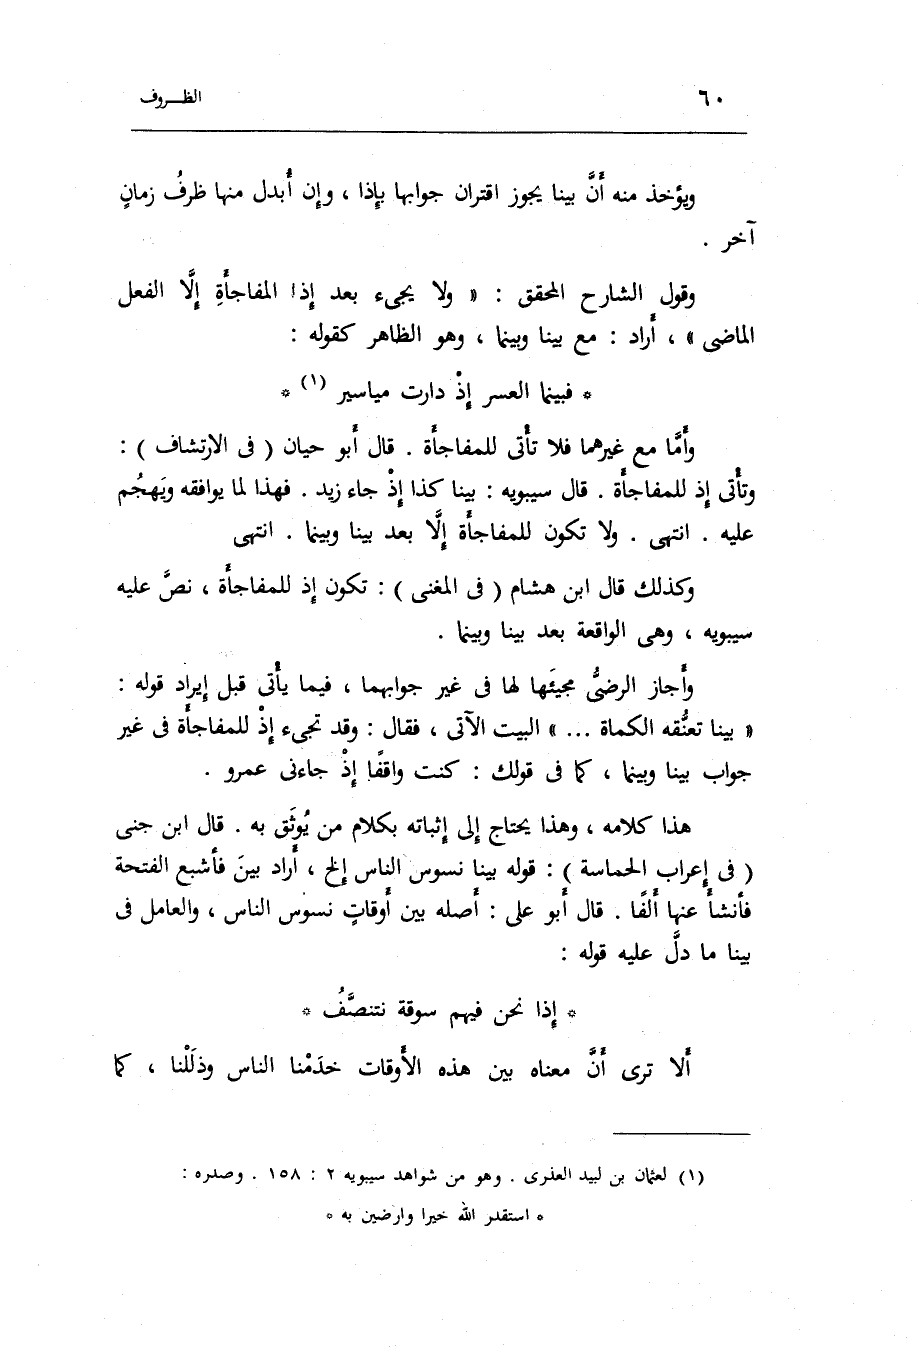 ٦٠ الظـــروف
ويؤخذ منه أَنَّ بينا يجوز اقتران جوابها بإِذا ، وإِن أُبدل منها ظرفُ زمانٍ
آخر .
وقول الشارح المحقق : « ولا يجىء بعد إِذا المفاجأَةِ إِلَّا الفعل
الماضى » ، أَراد : مع بينا وبينما ، وهو الظاهر كقوله :
* فبينما العسر إِذْ دارت مياسير (١) *
وأَمَّا مع غيرهما فلا تأْتى للمفاجأَة . قال أَبو حيان ( فى الارتشاف ) :
وتأْتى إِذ للمفاجأَة . قال سيبويه : بينا كذا إِذْ جاء زيد . فهذا لما يوافقه ويَهجُم
عليه . انتهى . ولا تكون للمفاجأَة إِلَّا بعد بينا وبينما . انتهى
وكذلك قال ابن هشام ( فى المغنى ) : تكون إِذ للمفاجأَة ، نصَّ عليه
سيبويه ، وهى الواقعة بعد بينا وبينما .
وأَجاز الرضىُّ مجيئَها لها فى غير جوابهما ، فيما يأْتى قبل إِيراد قوله :
« بينا تعنُّقه الكماة ... » البيت الآتى ، فقال : وقد تجىء إِذْ للمفاجأَة فى غير
جواب بينا وبينما ، كما فى قولك : كنت واقفًا إِذْ جاءنى عمرو .
هذا كلامه ، وهذا يحتاج إِلى إِثباته بكلام من يُوثَق به . قال ابن جنى
( فى إِعراب الحماسة ) : قوله بينا نسوس الناس إِلخ ، أَراد بينَ فأَشبع الفتحة
فأَنشأَ عنها أَلفًا . قال أَبو على : أَصله بين أَوقاتٍ نسوس الناس ، والعامل فى
بينا ما دلَّ عليه قوله :
* إِذا نحن فيهم سوقة نتنصَّفُ *
أَلا ترى أَنَّ معناه بين هذه الأَوقات خدَمْنا الناس وذلَلْنا ، كما
(١) لعثمان بن لبيد العذرى . وهو من شواهد سيبويه ٢ : ١٥٨ . وصدره :
* استقدر الله خيرا وارضين به *